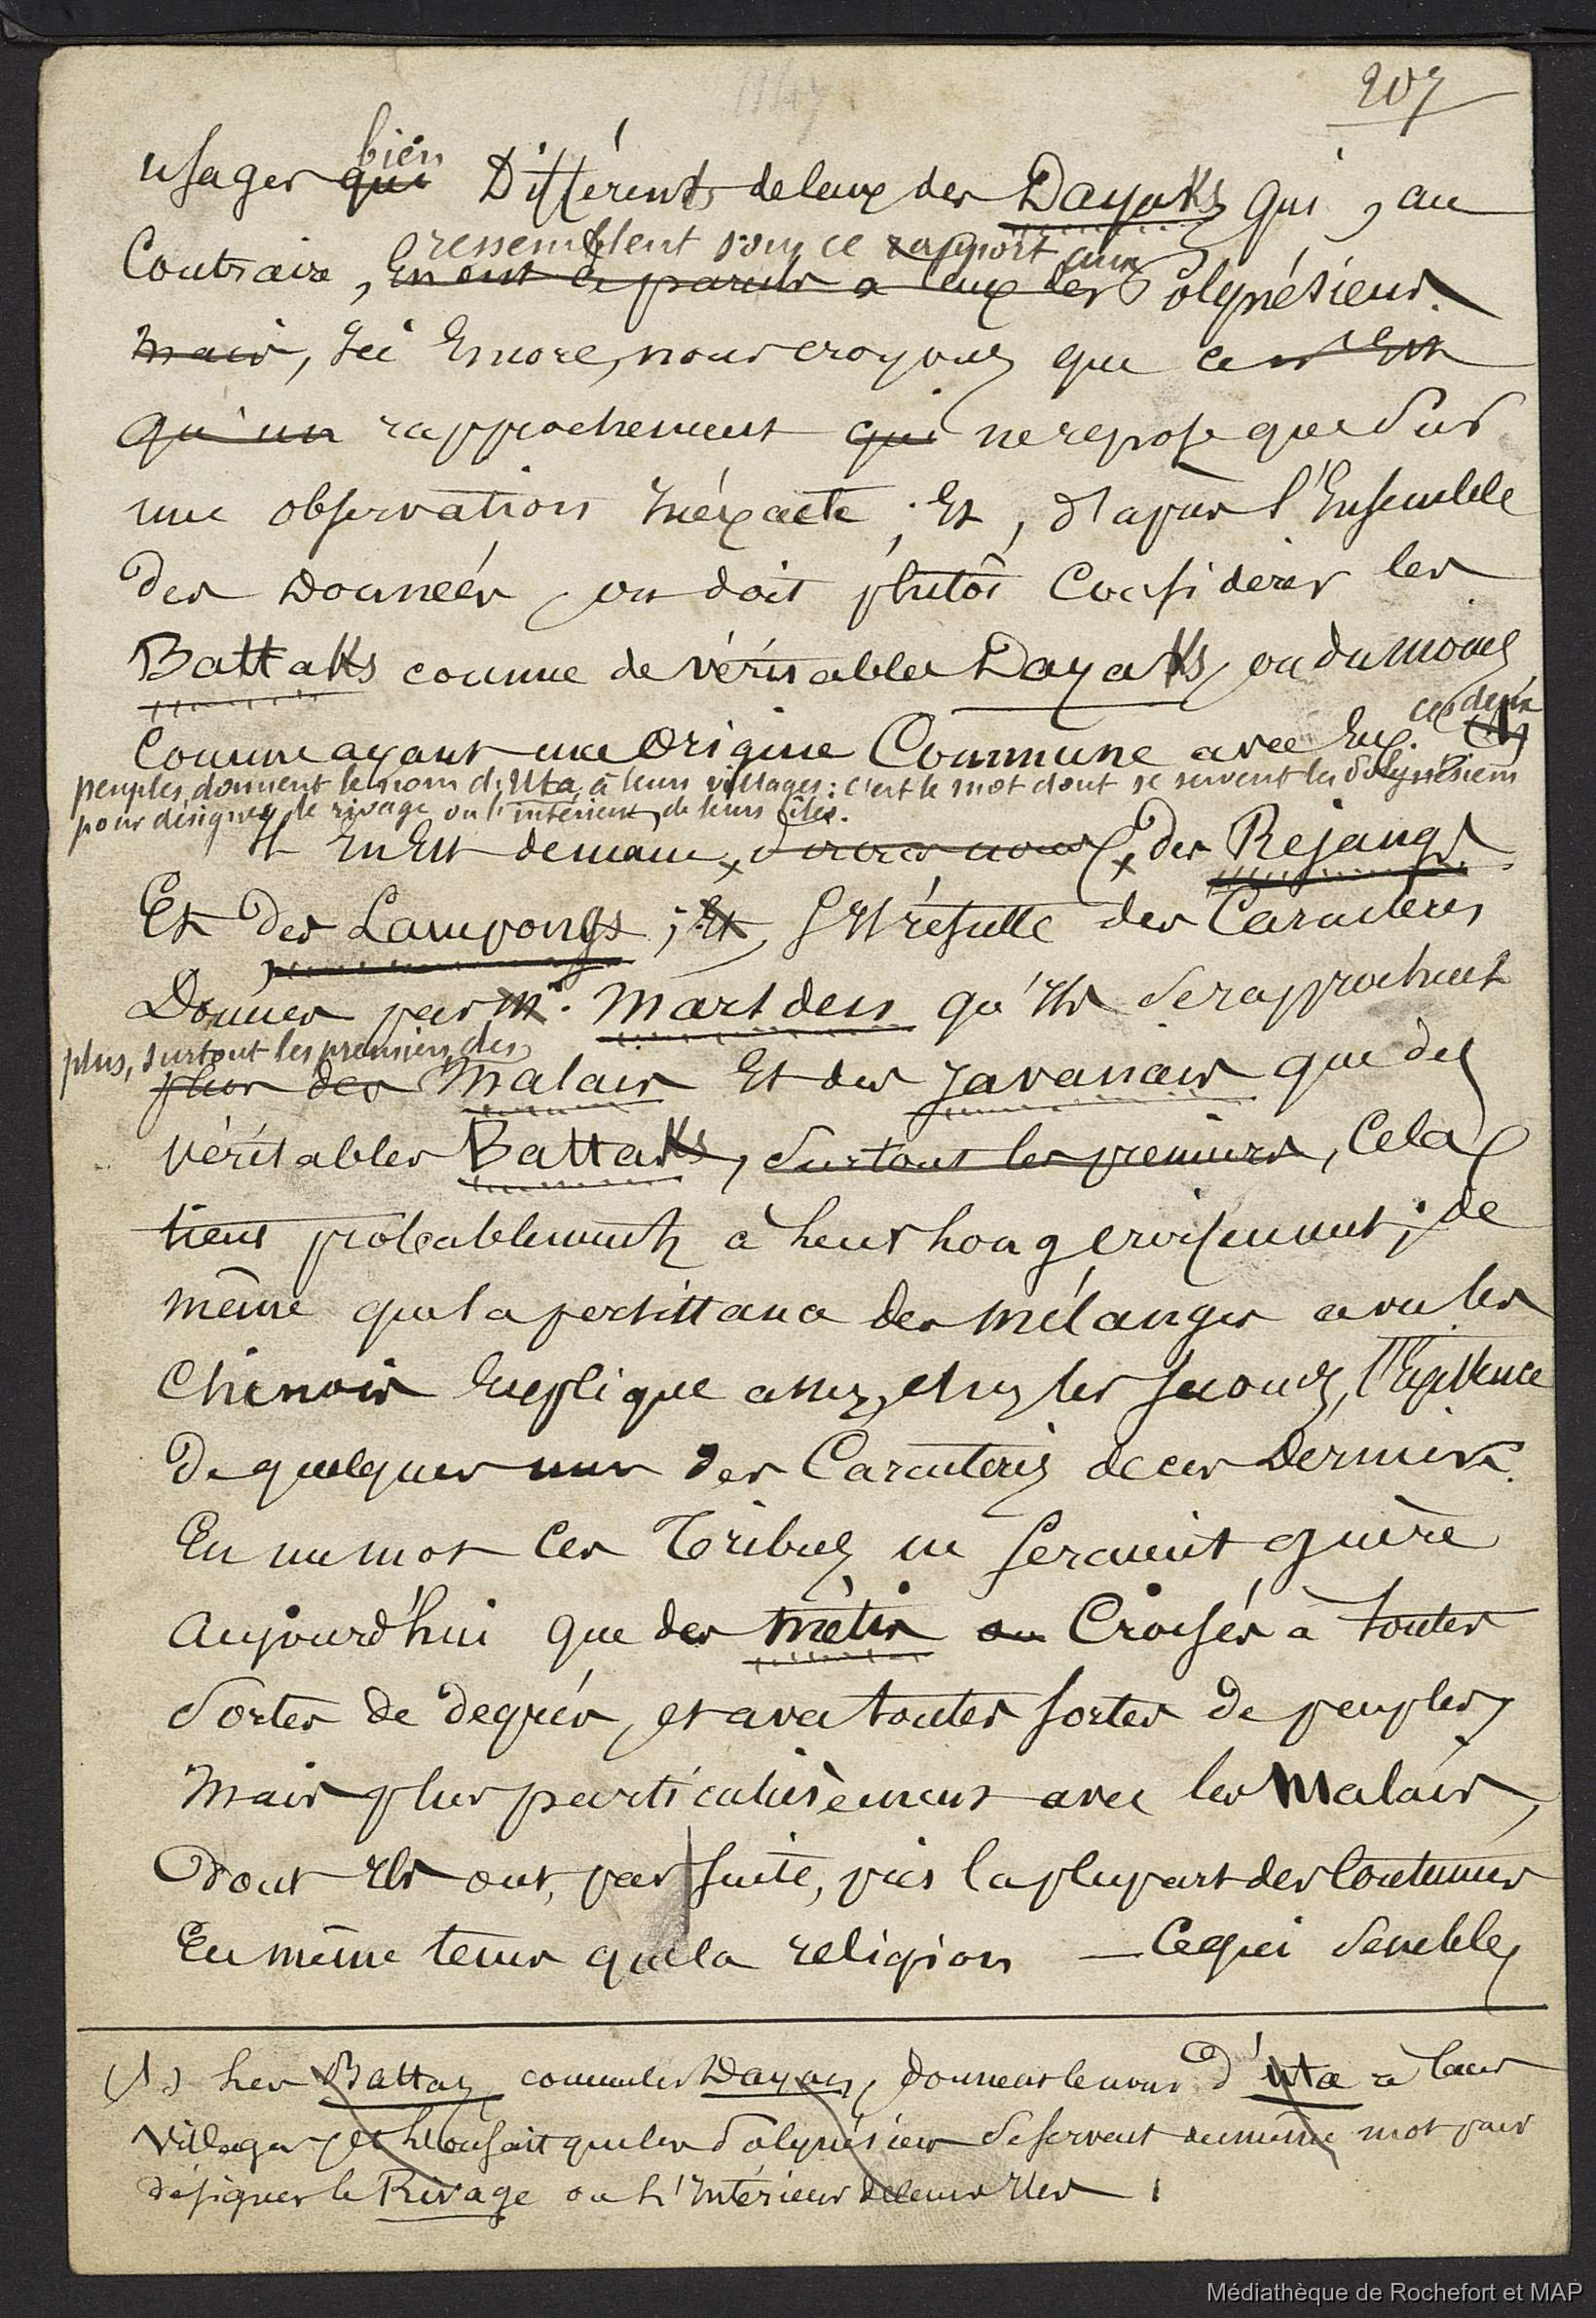 207
bien
usages qui Différents de ceux des Dayaks qui, au
ressemblent sous ce rapport aux
Contraire, en ont de pareils à ceux des Polynésiens.
Mais, Ici Encore, nous croyons que ce n'est
qu'un rapprochement qui ne repose que sur
une observation Inéxacte ; Et, d'après l'Ensemble
des Données, on doit plutôt Considérer les
Battaks comme de véritables Dayaks, ou du moins
ces deux
Comme ayant une Origine Commune avec Eux. (1)
peuples donnent le nom d'Uta à leurs villages : c'est le mot dont se servent les Polynésiens
pour désigner le rivage ou l'intérieur de leurs îles.
Il En Est de même, des Rejangs
Et des Lampongs ; Et S'Il résulte des Caractères
Donnés par Mr. Marsden qu'Ils se rapprochent
plus, surtout les premiers, des
plus des Malais Et des Javanais que des
véritables Battaks, surtout les premiers, Cela
tient probablement à leur long croisement ; de
même que la persistance des mélanges avec les
Chinois Explique assez, chez les seconds, l'Existence
de quelques uns des Caractères de ces Derniers.
En un mot Ces Tribus ne seraient guère
Aujourd'hui que des métis ou Croisés à toutes
Sortes de degrés, et avec toutes sortes de peuples,
Mais plus particulièrement avec les Malais,
Dont Ils ont, par suite, pris la plupart des Coutumes
En même tems que la religion — Ce qui semble,
(1) Les Battas, comme les Dayas, donnent le nom d'Uta à leurs
villages, et l'on sait que les Polynésiens se servent du même mot pour
désigner le Rivage ou l'Intérieur de leurs Iles
Médiathèque de Rochefort et MAP